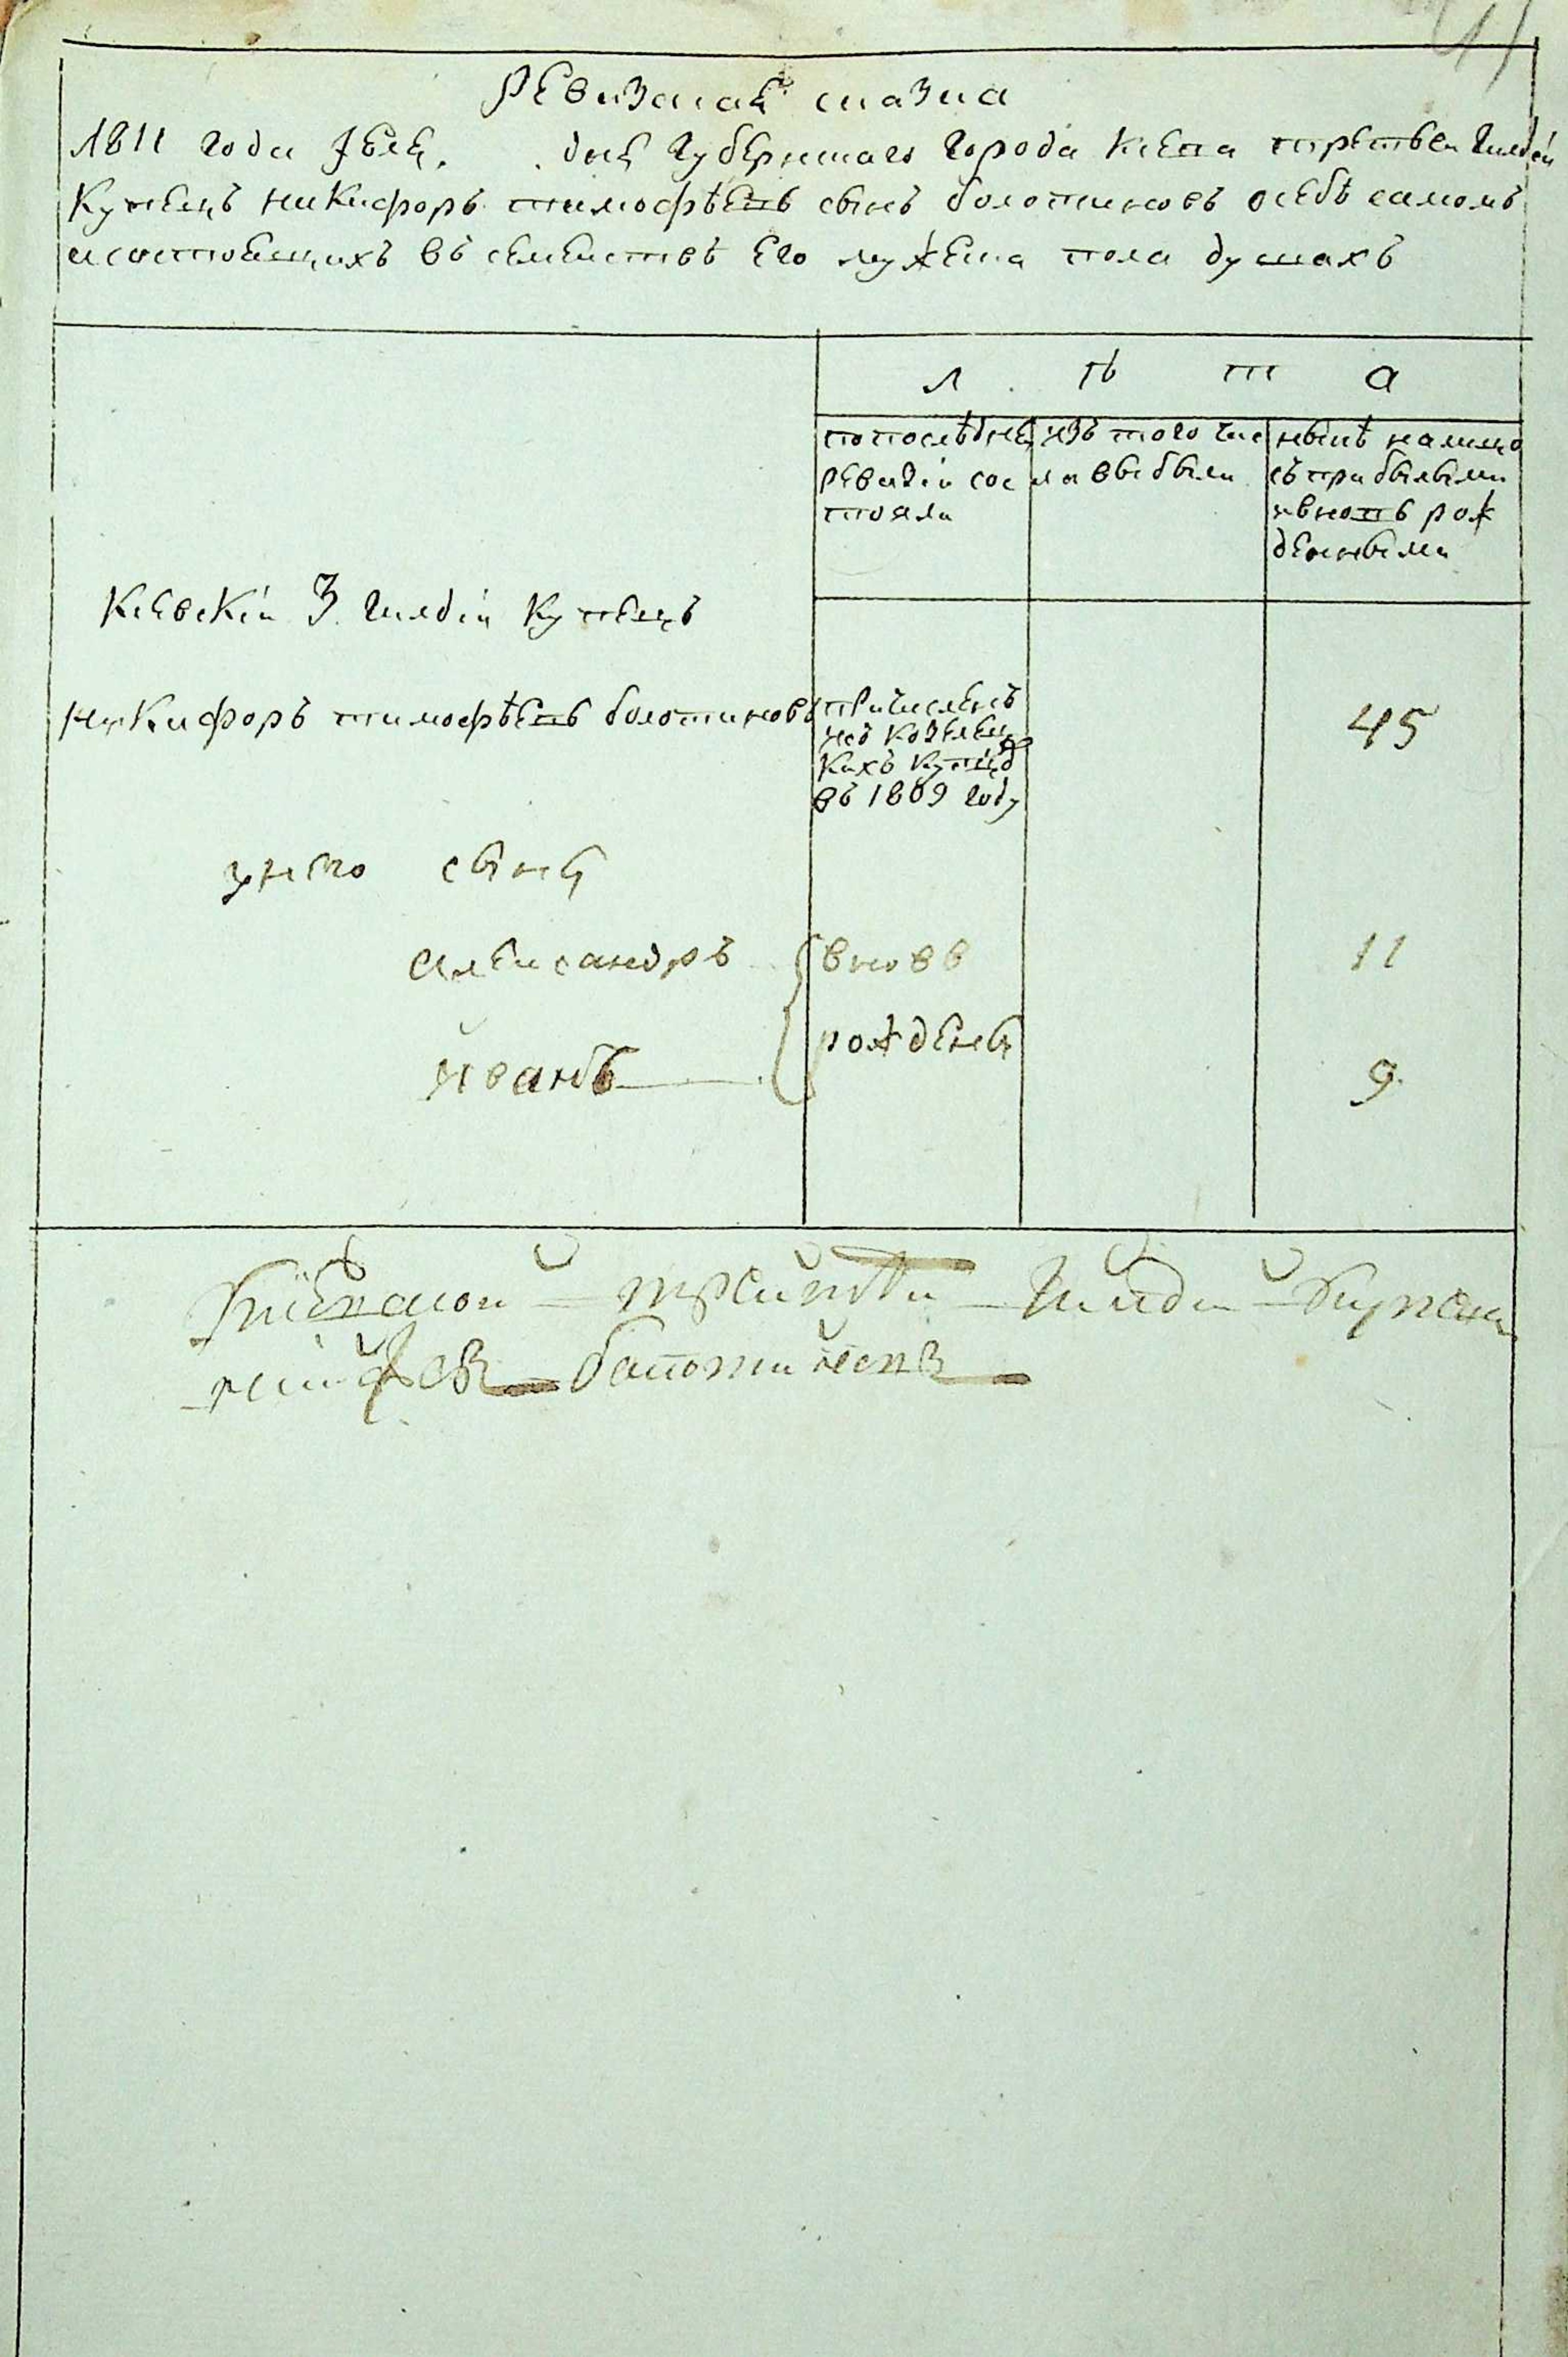 41
Ревизская сказка
1811 года Июля. дня Губернскаго города Киева третьей Гилдїи
Купецъ никифоръ тимофѣевъ сынъ болотиновъ осебѣ самомъ
исостоящихъ въ семействѣ Его мужеска пола душахъ
Л Ѣ т а
попослѣдней
ревизїи сос
тояли
изъ того чис
ла выбыли
нынѣ налицо
съприбылыми
ивновь рож
денными
Кіевскїй 3 гилдїи Купецъ
никифоръ тимофѣевъ болотиновъ
причисленъ
изъ козелец
кихъ купцовъ
въ 1809 году
45
унего сыны
Александръ
вновь
11
рождены
иванъ
9
Киевской третей Гилди Купец
болотиновъ